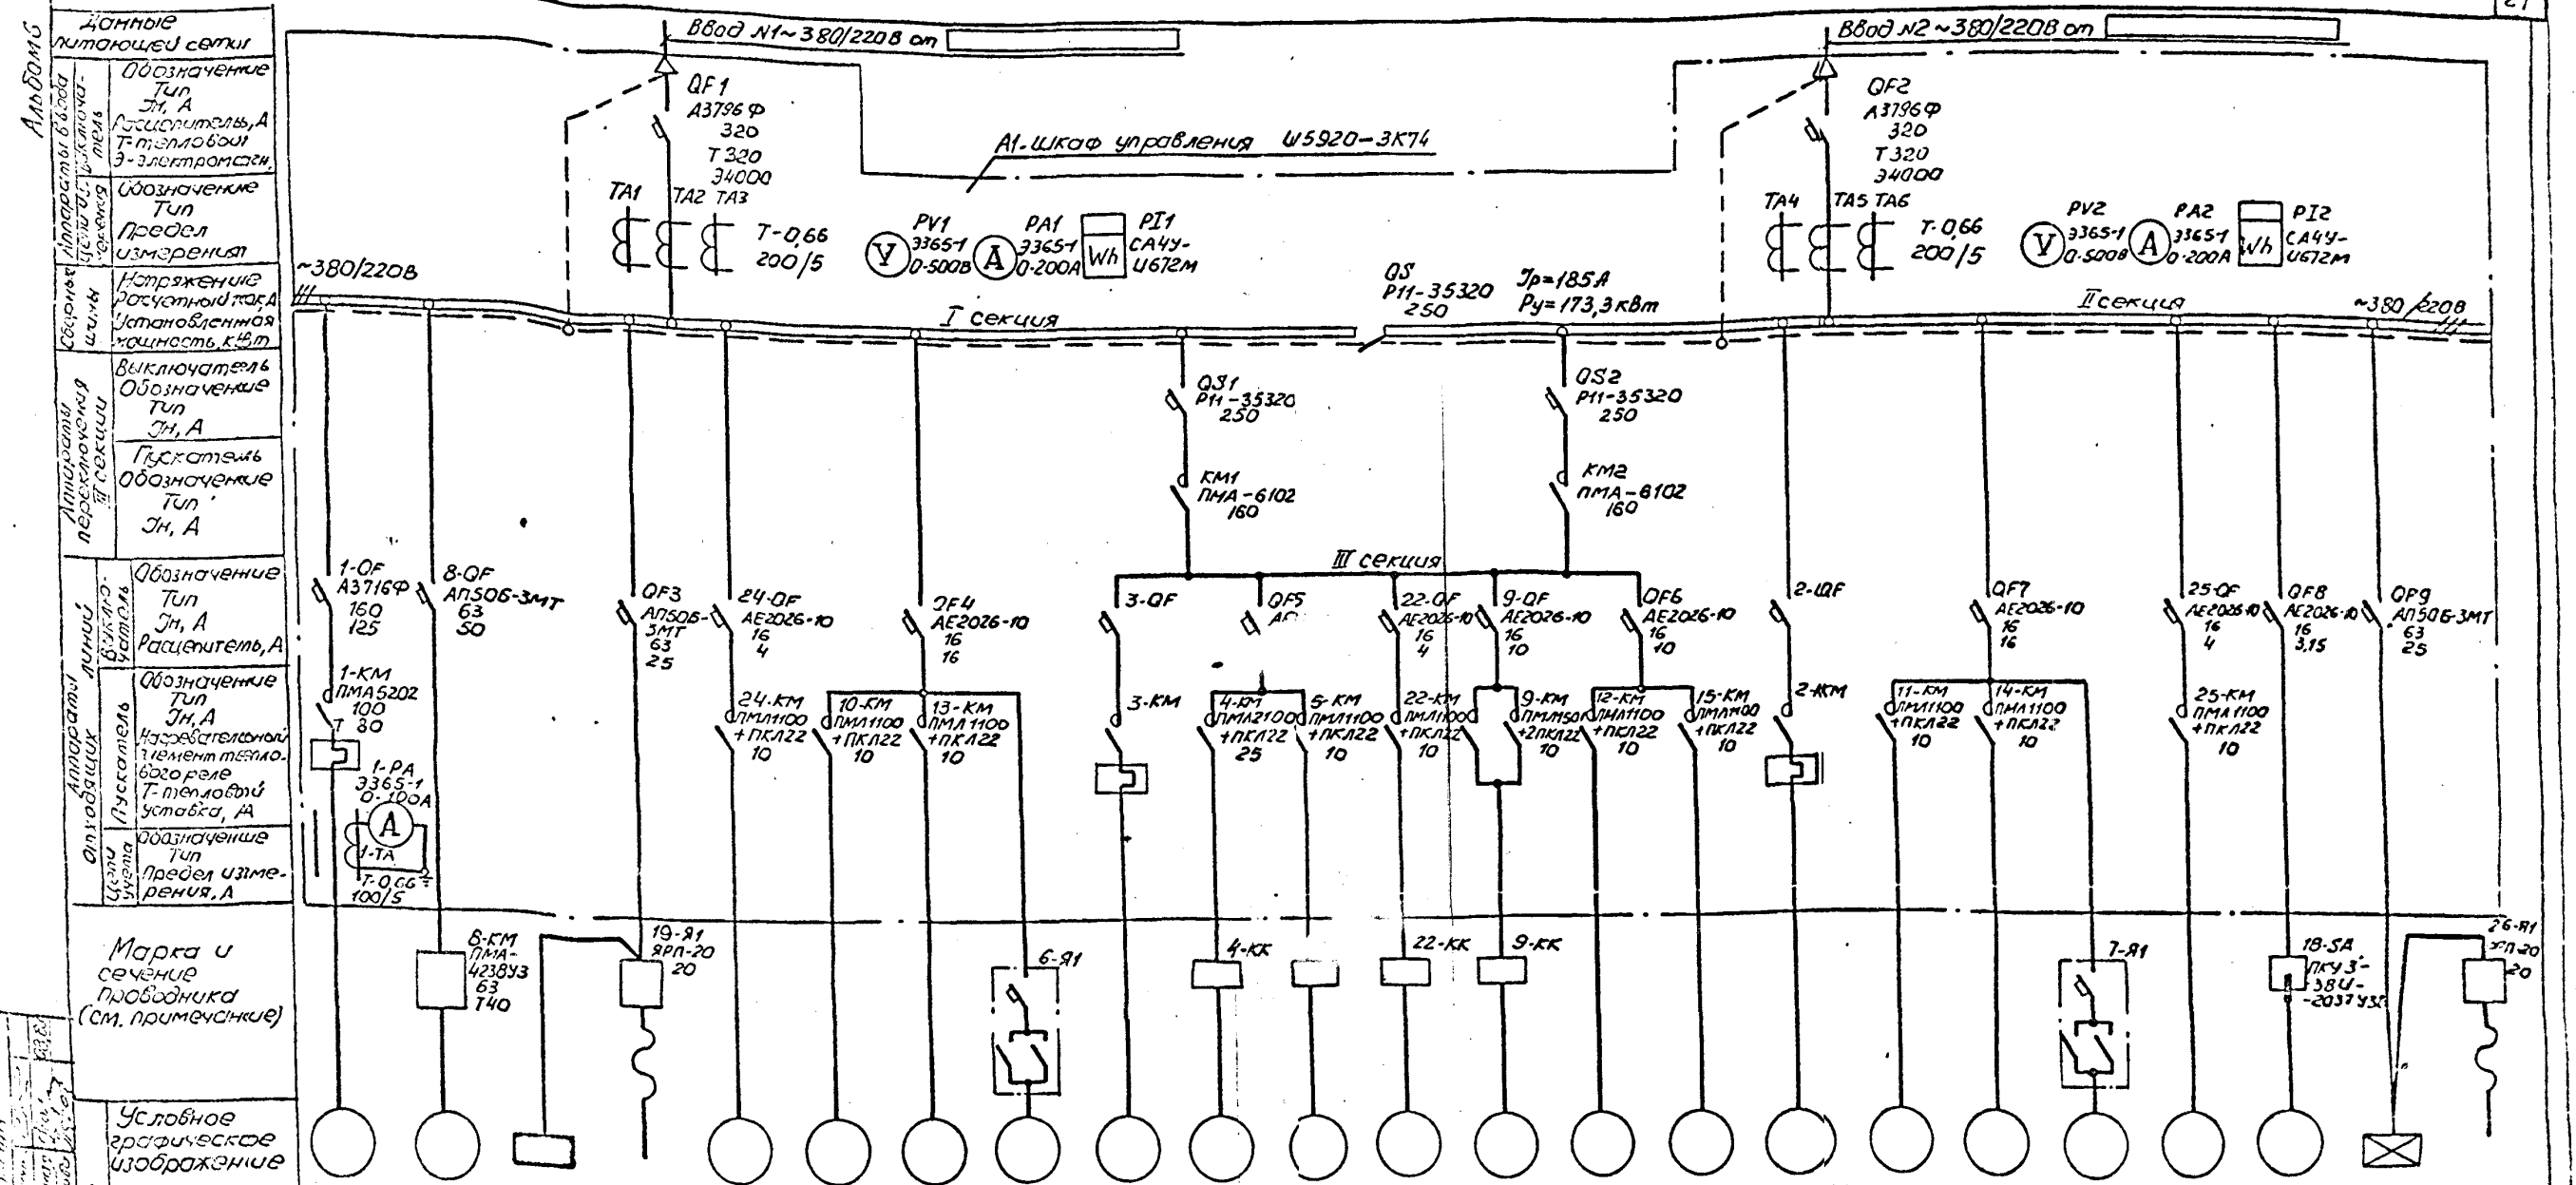 21
Альбом 6
Данные
питающей сети
Аппараты ввода
Выключа-
тель
Обозначение
Тип
Iн, А
Расцепитель, А
Т-тепловой
Э-электромагн.
Обозначение
Тип
Предел
измерения
Сборные
шины
Напряжение
Расчетный ток, А
Установленная
мощность, кВт
Аппараты
переключения
III секции
Выключатель
Обозначение
Тип
Iн, А
Пускатель
Обозначение
Тип
Iн, А
Аппараты
отходящих линий
Выклю-
чатель
Обозначение
Тип
Iн, А
Расцепитель, А
Пускатель
Обозначение
Тип
Iн, А
Нагревательный
элемент тепло-
вого реле
Т-тепловой
уставка, А
Цепи
учета
Обозначение
Тип
Предел изме-
рения, А
Марка и
сечение
проводника
(см. примечание)
Условное
графическое
изображение
Ввод N1~380/220В от
Ввод N2~380/220В от
QF1
А3796Ф
320
Т320
Э4000
А1-шкаф управления Ш5920-3К74
QF2
А3796Ф
320
Т320
Э4000
ТА1
ТА2
ТА3
Т-0,66
200/5
PV1
Э365-1
0-500В
V
PA1
Э365-1
0-200А
A
PI1
СА4У-
И672М
Wh
ТА4
ТА5
ТА6
Т-0,66
200/5
PV2
Э365-1
0-500В
V
PA2
Э365-1
0-200А
A
PI2
СА4У-
И672М
Wh
~380/220В
I секция
QS
Р11-35320
250
Iр=185А
Ру=173,3кВт
II секция
~380/220В
QS1
Р11-35320
250
QS2
Р11-35320
250
КМ1
ПМА-6102
160
КМ2
ПМА-6102
160
III секция
1-QF
А3716Ф
160
125
8-QF
АП50Б-3МТ
63
50
QF3
АП50Б-
3МТ
63
25
24-QF
АЕ2026-10
16
4
QF4
АЕ2026-10
16
16
3-QF
QF5
22-QF
АЕ2026-10
16
4
9-QF
АЕ2026-10
16
10
QF6
АЕ2026-10
16
10
2-QF
QF7
АЕ2026-10
16
16
25-QF
АЕ2026-10
16
4
QF8
АЕ2026-10
16
3,15
QF9
АП50Б-3МТ
63
25
1-КМ
ПМА5202
100
Т 80
24-КМ
ПМЛ1100
+ПКЛ22
10
10-КМ
ПМЛ1100
+ПКЛ22
10
13-КМ
ПМЛ1100
+ПКЛ22
10
3-КМ
4-КМ
ПМЛ2100
+ПКЛ22
25
5-КМ
ПМЛ1100
+ПКЛ22
10
22-КМ
ПМЛ1100
+ПКЛ22
10
9-КМ
ПМЛ1501
+2ПКЛ22
10
12-КМ
ПМЛ1100
+ПКЛ22
10
15-КМ
ПМЛ1100
+ПКЛ22
10
2-КМ
11-КМ
ПМЛ1100
+ПКЛ22
10
14-КМ
ПМЛ1100
+ПКЛ22
10
25-КМ
ПМЛ1100
+ПКЛ22
10
1-РА
Э365-1
0-100А
A
1-ТА
Т-0,66
100/5
8-КМ
ПМА-
4238У3
63
Т40
19-Я1
ЯРП-20
20
6-Я1
4-КК
22-КК
9-КК
7-Я1
18-SA
ПКУ3-
-38И-
-2037У3
26-Я1
ЯРП-20
20